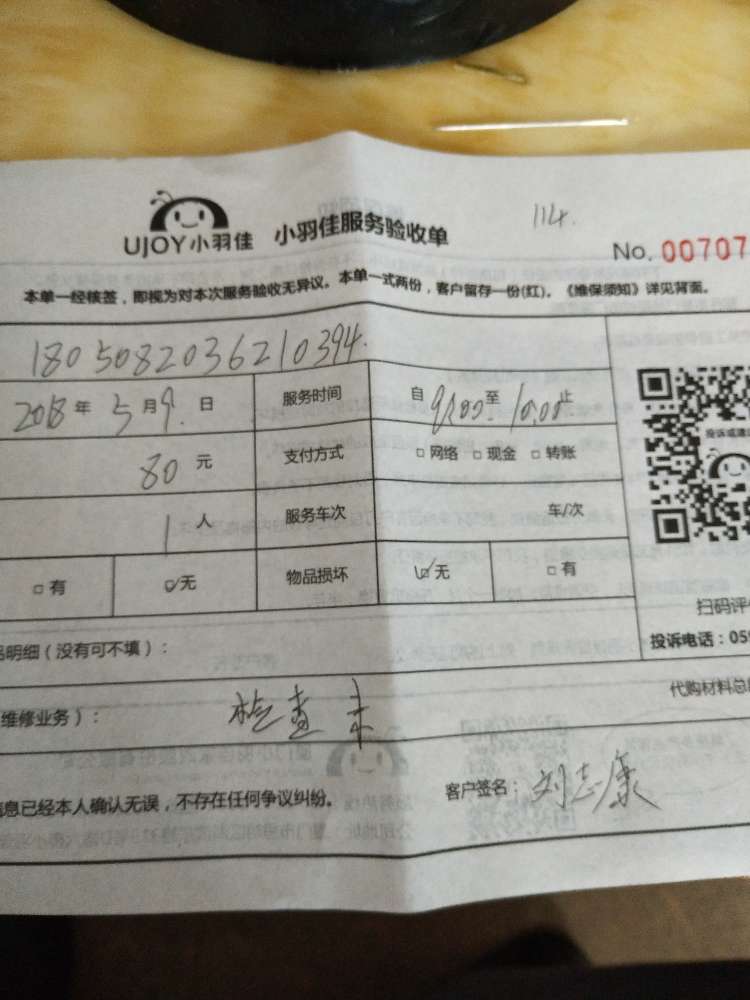 114.
UJOY小羽佳 小羽佳服务验收单
No. 00707
本单一经核签，即视为对本次服务验收无异议。本单一式两份，客户留存一份(红)。《维保须知》详见背面。
1805082036210394.
2018年5月9.日 服务时间 自9:00至10:00止
80元 支付方式 □网络 □现金 □转账
投诉或建议
1人 服务车次 车/次
□有 ☑无 物品损坏 ☑无 □有
扫码评
品明细（没有可不填）：
投诉电话：059
维修业务）： 检查
代购材料总
信息已经本人确认无误，不存在任何争议纠纷。 客户签名：刘志康